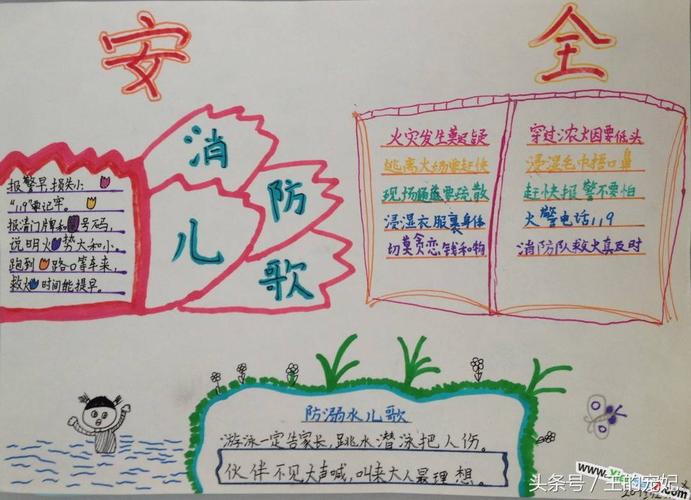 安全
消防儿歌
报警早,损失小,
“119”要记牢。
报清门牌和号码,
说明火势大和小,
跑到路口等车来,
救火时间能提早。
火灾发生莫迟疑
逃离火场要赶快
现场疏散
浸湿衣服裹身体
切莫贪恋钱和物
穿过浓烟要低头
浸湿毛巾捂口鼻
赶快报警不要怕
火警电话119
消防队救火真及时
防溺水儿歌
游泳一定告家长,跳水潜泳把人伤。
伙伴不见大声喊,叫来大人最理想。
www.
头条号/王的宠妃